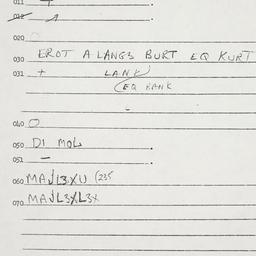 011 +
012
020
EROT A LANGS BURT EQ KURT
030
031 + LANK
EQ RANK
-
040 O
050 DI MOL
051 -
060 MAJL3XU (235
070 MAJL3XL3X